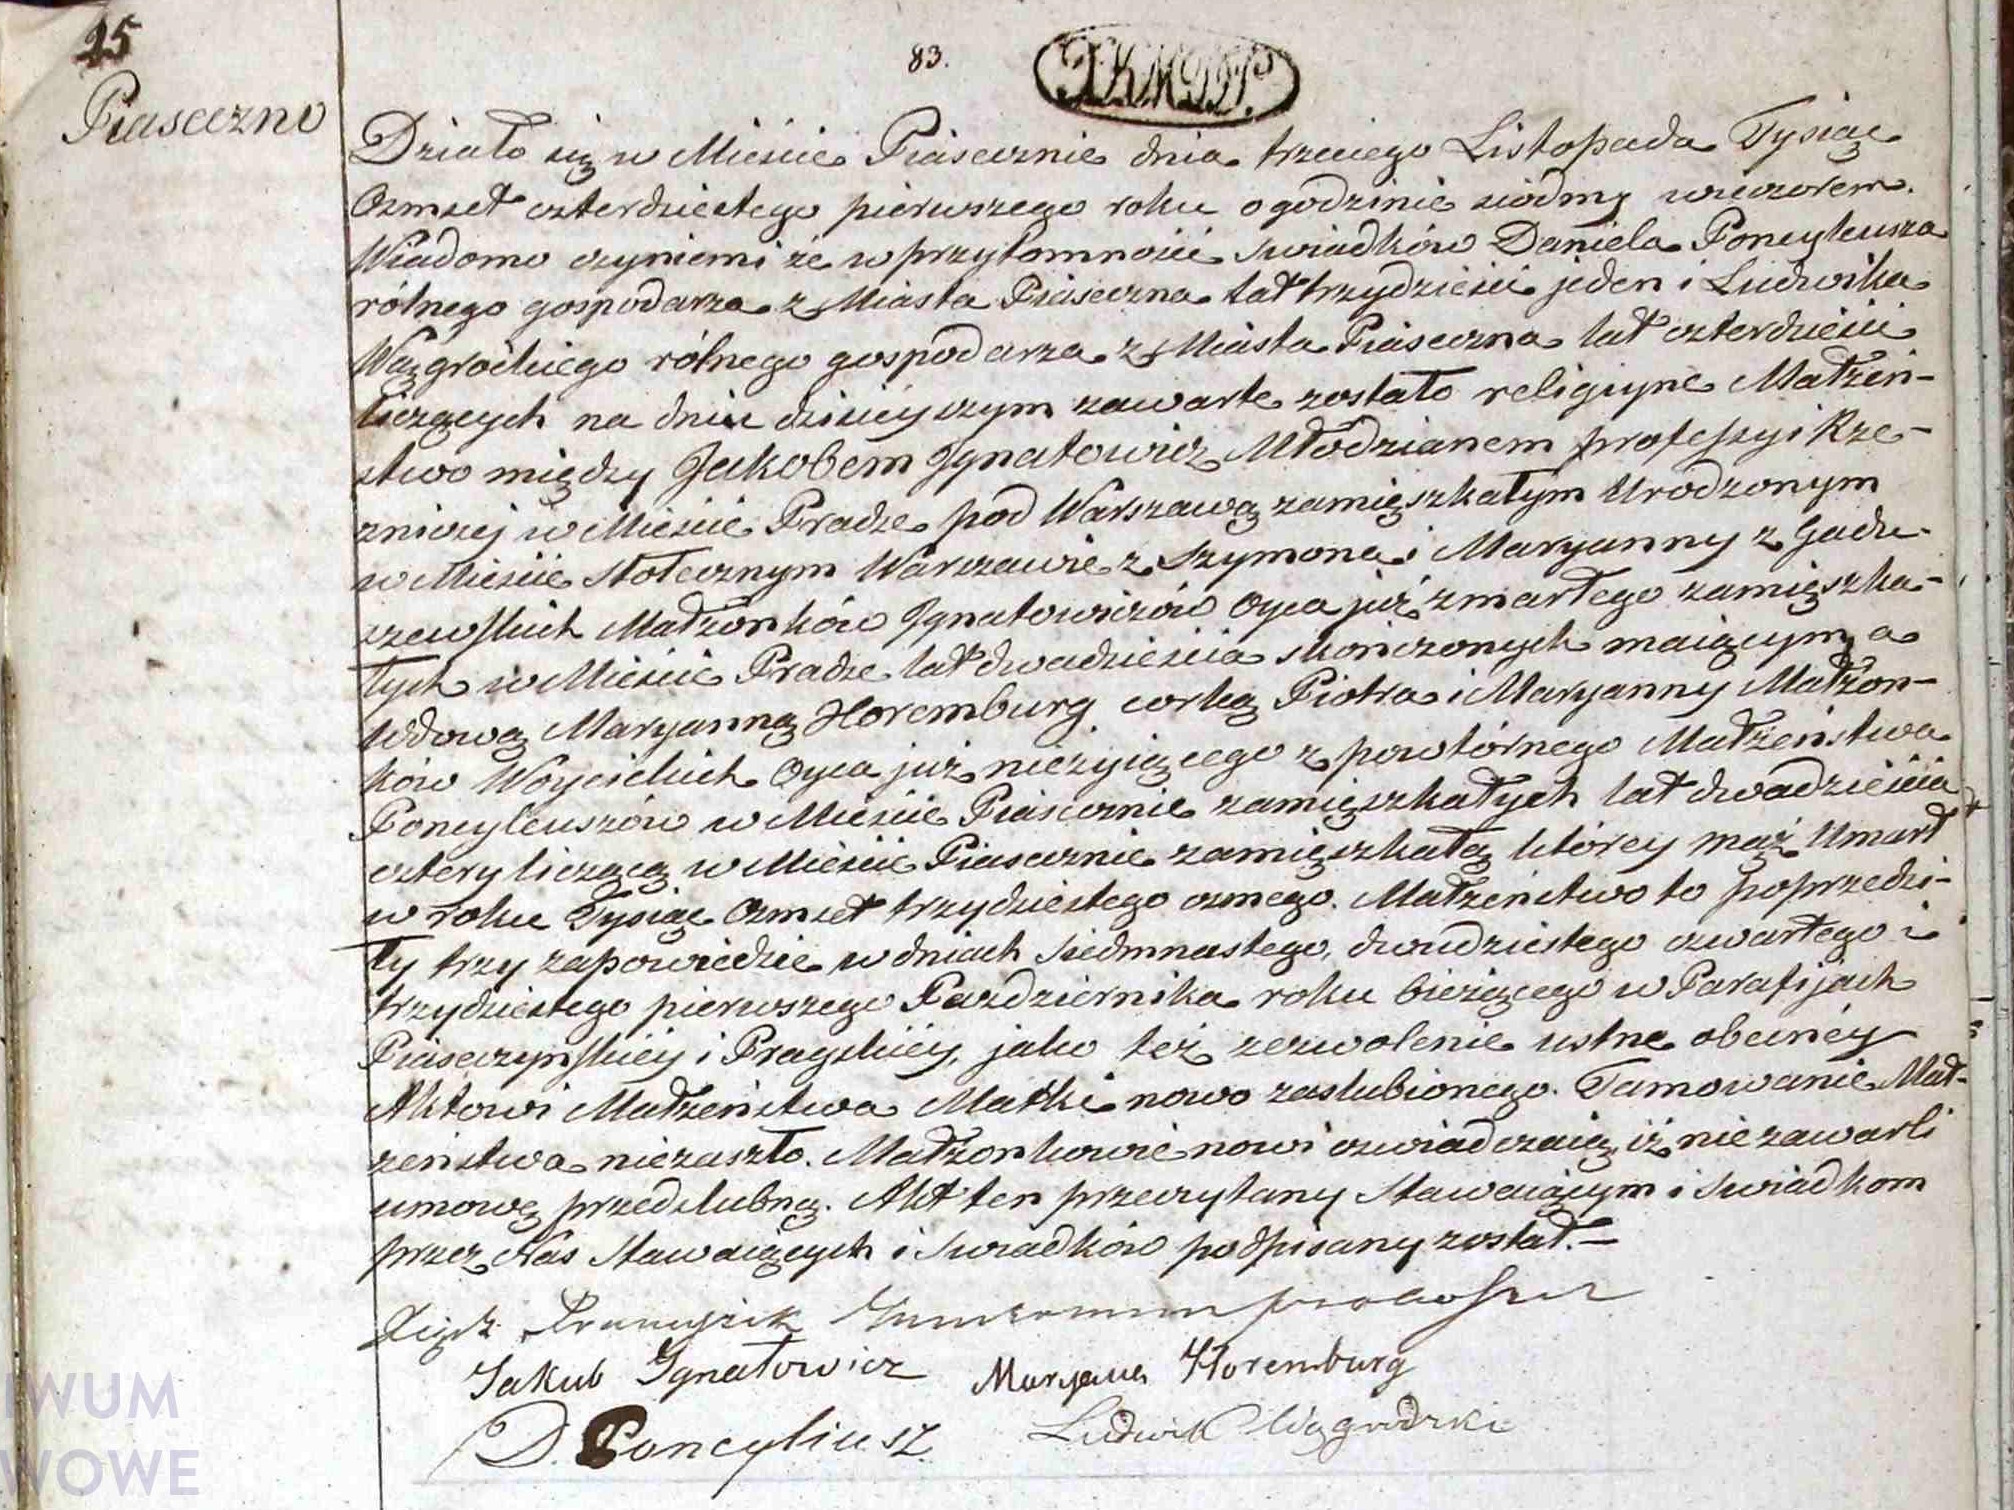 45
Piaseczno
83.
Działo się w Mieście Piasecznie dnia trzeciego Listopada Tysiąc
Ozmset czterdziestego pierwszego roku o godzinie siódmy wieczorem.
Wiadomo czyniemi że w przytomności swiadków Daniela Poncyleusza
rólnego gospodarza z Miasta Piaseczna lat trzydzieści jeden i Ludwika
Wągrockiego rólnego gospodarza z Miasta Piaseczna lat czterdzieści
liczących na dniu dzisieyszym zawarte zostało religiyne Małżeń-
stwo między Jakobem Jgnatowicz Młodzianem professyi Rze-
zniczej w Mieście Pradze pod Warszawą zamięszkałym Urodzonym
w Mieście stołecznym Warszawie z Szymona i Maryanny z Gadu-
szewskich Małżonków Jgnatowiczów Oyca już zmarłego zamięszka-
łych w Mieście Pradze lat dwadzieścia skończonych maiącym, a
Wdową Maryanną Horemburg corką Piotra i Maryanny Małżon-
ków Woycickich Oyca już nieżyiącego z powtórnego Małżeństwa
Poncyleuszów w Mieście Piasecznie zamięszkałych lat dwadzieścia
cztery liczącą w Mieście Piasecznie zamięszkałą którey mąż Umarł
w roku Tysiąc Ozmset trzydziestego osmego. Małżeństwo to poprzedzi-
ły trzy zapowiedzie w dniach siedmnastego, dwudziestego czwartego i
trzydziestego pierwszego Pazdziernika roku bieżącego w Parafijach
Piaseczyńskiéy i Pragskiéy, jako też zezwolenie ustne obecnéy
Aktowi Małżeństwa Matki nowo zaslubionego. Tamowanie Mał-
żeństwa niezaszło. Małżonkowie nowi oswiadczaią, iż nie zawarli
umowę przedslubną. Akt ten przeczytany Stawaiącym i Swiadkom
przez Nas Stawaiących i Swiadków podpisany został.—
Xiądz Franciszek
Jakub Jgnatowicz Maryana Horemburg
D. Poncyliusz Ludwik Wągrodzki
IWUM
WOWE